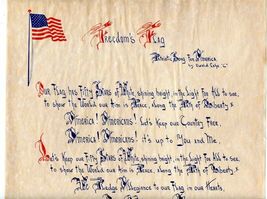 Freedom's Flag
Patriotic Song For America
by
Our Flag has Fifty Stars of White, shining bright, in the Light For All to see,
to show the World our Aim is Peace, along the Path of Liberty.
America! Americans! Let's keep our Country Free,
America! Americans! it's up to You and Me.
Let's keep our Fifty Stars of White, shining bright, in the Light For All to see,
to show the World our Aim is Peace, along the Path of Liberty.
We Pledge Allegiance to our Flag in our Hearts,